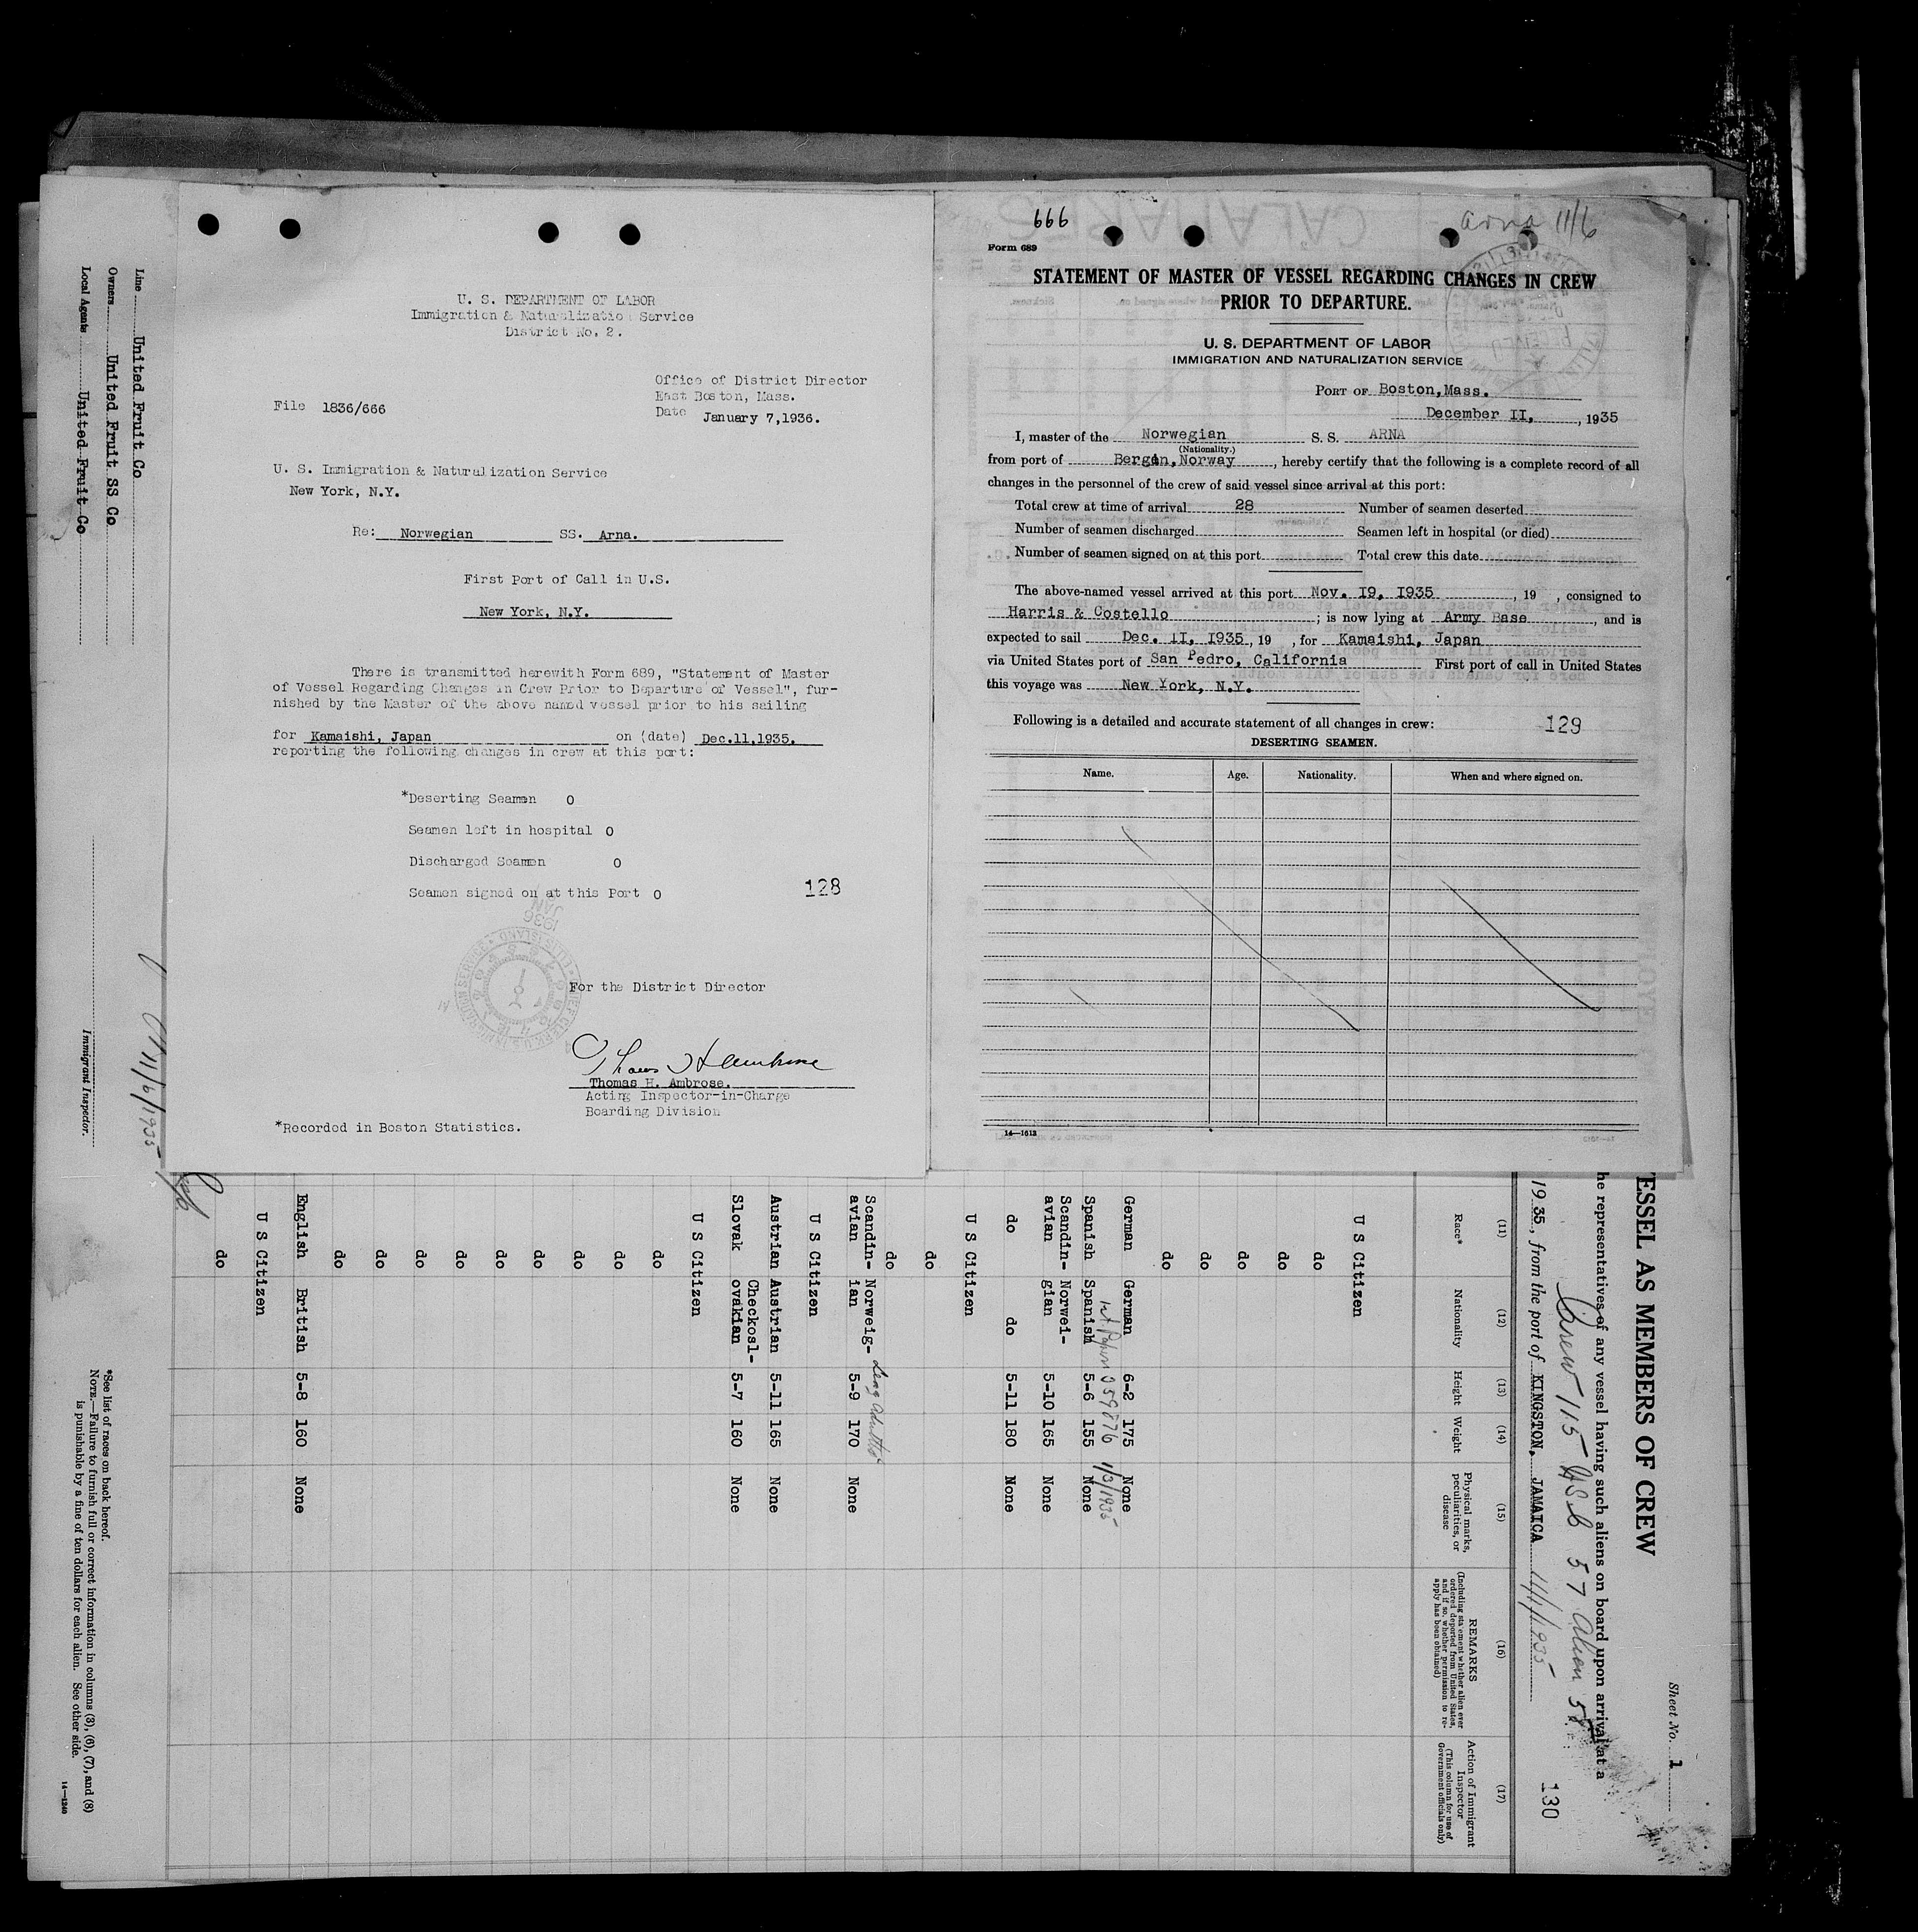 U. S. DEPARTMENT OF LABOR
Immigration & Naturalization Service
District No. 2.
Office of District Director
East Boston, Mass.
File 1836/666
Date January 7,1936.
U. S. Immigration & Naturalization Service
New York, N.Y.
Re: Norwegian SS. Arna.
First Port of Call in U.S.
New York, N.Y.
There is transmitted herewith Form 689, "Statement of Master
of Vessel Regarding Changes in Crew Prior to Departure of Vessel", fur-
nished by the Master of the above named vessel prior to his sailing
for Kamaishi, Japan on (date) Dec.11,1935.
reporting the following changes in crew at this port:
*Deserting Seamen 0
Seamen left in hospital 0
Discharged Seamen 0
Seamen signed on at this Port 0
128
1936
For the District Director
Thomas H. Ambrose
Thomas H. Ambrose.
Acting Inspector-in-Charge
Boarding Division
*Recorded in Boston Statistics.
666
Arna 11/6
Form 689
STATEMENT OF MASTER OF VESSEL REGARDING CHANGES IN CREW
PRIOR TO DEPARTURE.
U. S. DEPARTMENT OF LABOR
IMMIGRATION AND NATURALIZATION SERVICE
PORT OF Boston,Mass.
December II, , 1935
I, master of the Norwegian S. S. ARNA
(Nationality.)
from port of Bergen,Norway , hereby certify that the following is a complete record of all
changes in the personnel of the crew of said vessel since arrival at this port:
Total crew at time of arrival 28 Number of seamen deserted
Number of seamen discharged Seamen left in hospital (or died)
Number of seamen signed on at this port Total crew this date
The above-named vessel arrived at this port Nov. I9, I935 , 19 , consigned to
Harris & Costello ; is now lying at Army Base , and is
expected to sail Dec. II, I935 , 19 , for Kamaishi, Japan
via United States port of San Pedro, California First port of call in United States
this voyage was New York, N.Y.
Following is a detailed and accurate statement of all changes in crew: 129
DESERTING SEAMEN.
Name. Age. Nationality. When and where signed on.
14—1612
Sheet No. 1
ESSEL AS MEMBERS OF CREW
he representatives of any vessel having such aliens on board upon arrival at a
Crew 115 USC 57 Alien 58
1935, from the port of KINGSTON, JAMAICA 11/1/1935
130
(11) (12) (13) (14) (15) (16) (17)
Race* Nationality Height Weight Physical marks, peculiarities, or disease REMARKS (Including statement whether alien ever ordered deported from United States, and if so, whether permission to re-apply has been obtained) Action of Immigrant Inspector (This column for use of Government officials only)
U S Citizen
do
do
do
do
do
German German 6-2 175 None
1st Papers 359876 1/3/1935
Spanish Spanish 5-6 155 None
Scandin- Norwei-
avian gian 5-10 165 None
do do 5-11 180 None
U S Citizen
do
do
Scandin- Norweig-
avian ian 5-9 170 None
U S Citizen
Austrian Austrian 5-11 165 None
Checkosl-
Slovak ovakian 5-7 160 None
U S Citizen
do
do
do
do
do
do
do
do
do
English British 5-8 160 None
U S Citizen
do
Line United Fruit Co
Owners United Fruit SS Co
Local Agents United Fruit Co
11/6/1935
Immigrant Inspector.
*See list of races on back hereof.
NOTE.—Failure to furnish full or correct information in columns (3), (6), (7), and (8)
is punishable by a fine of ten dollars for each alien. See other side.
14—1240